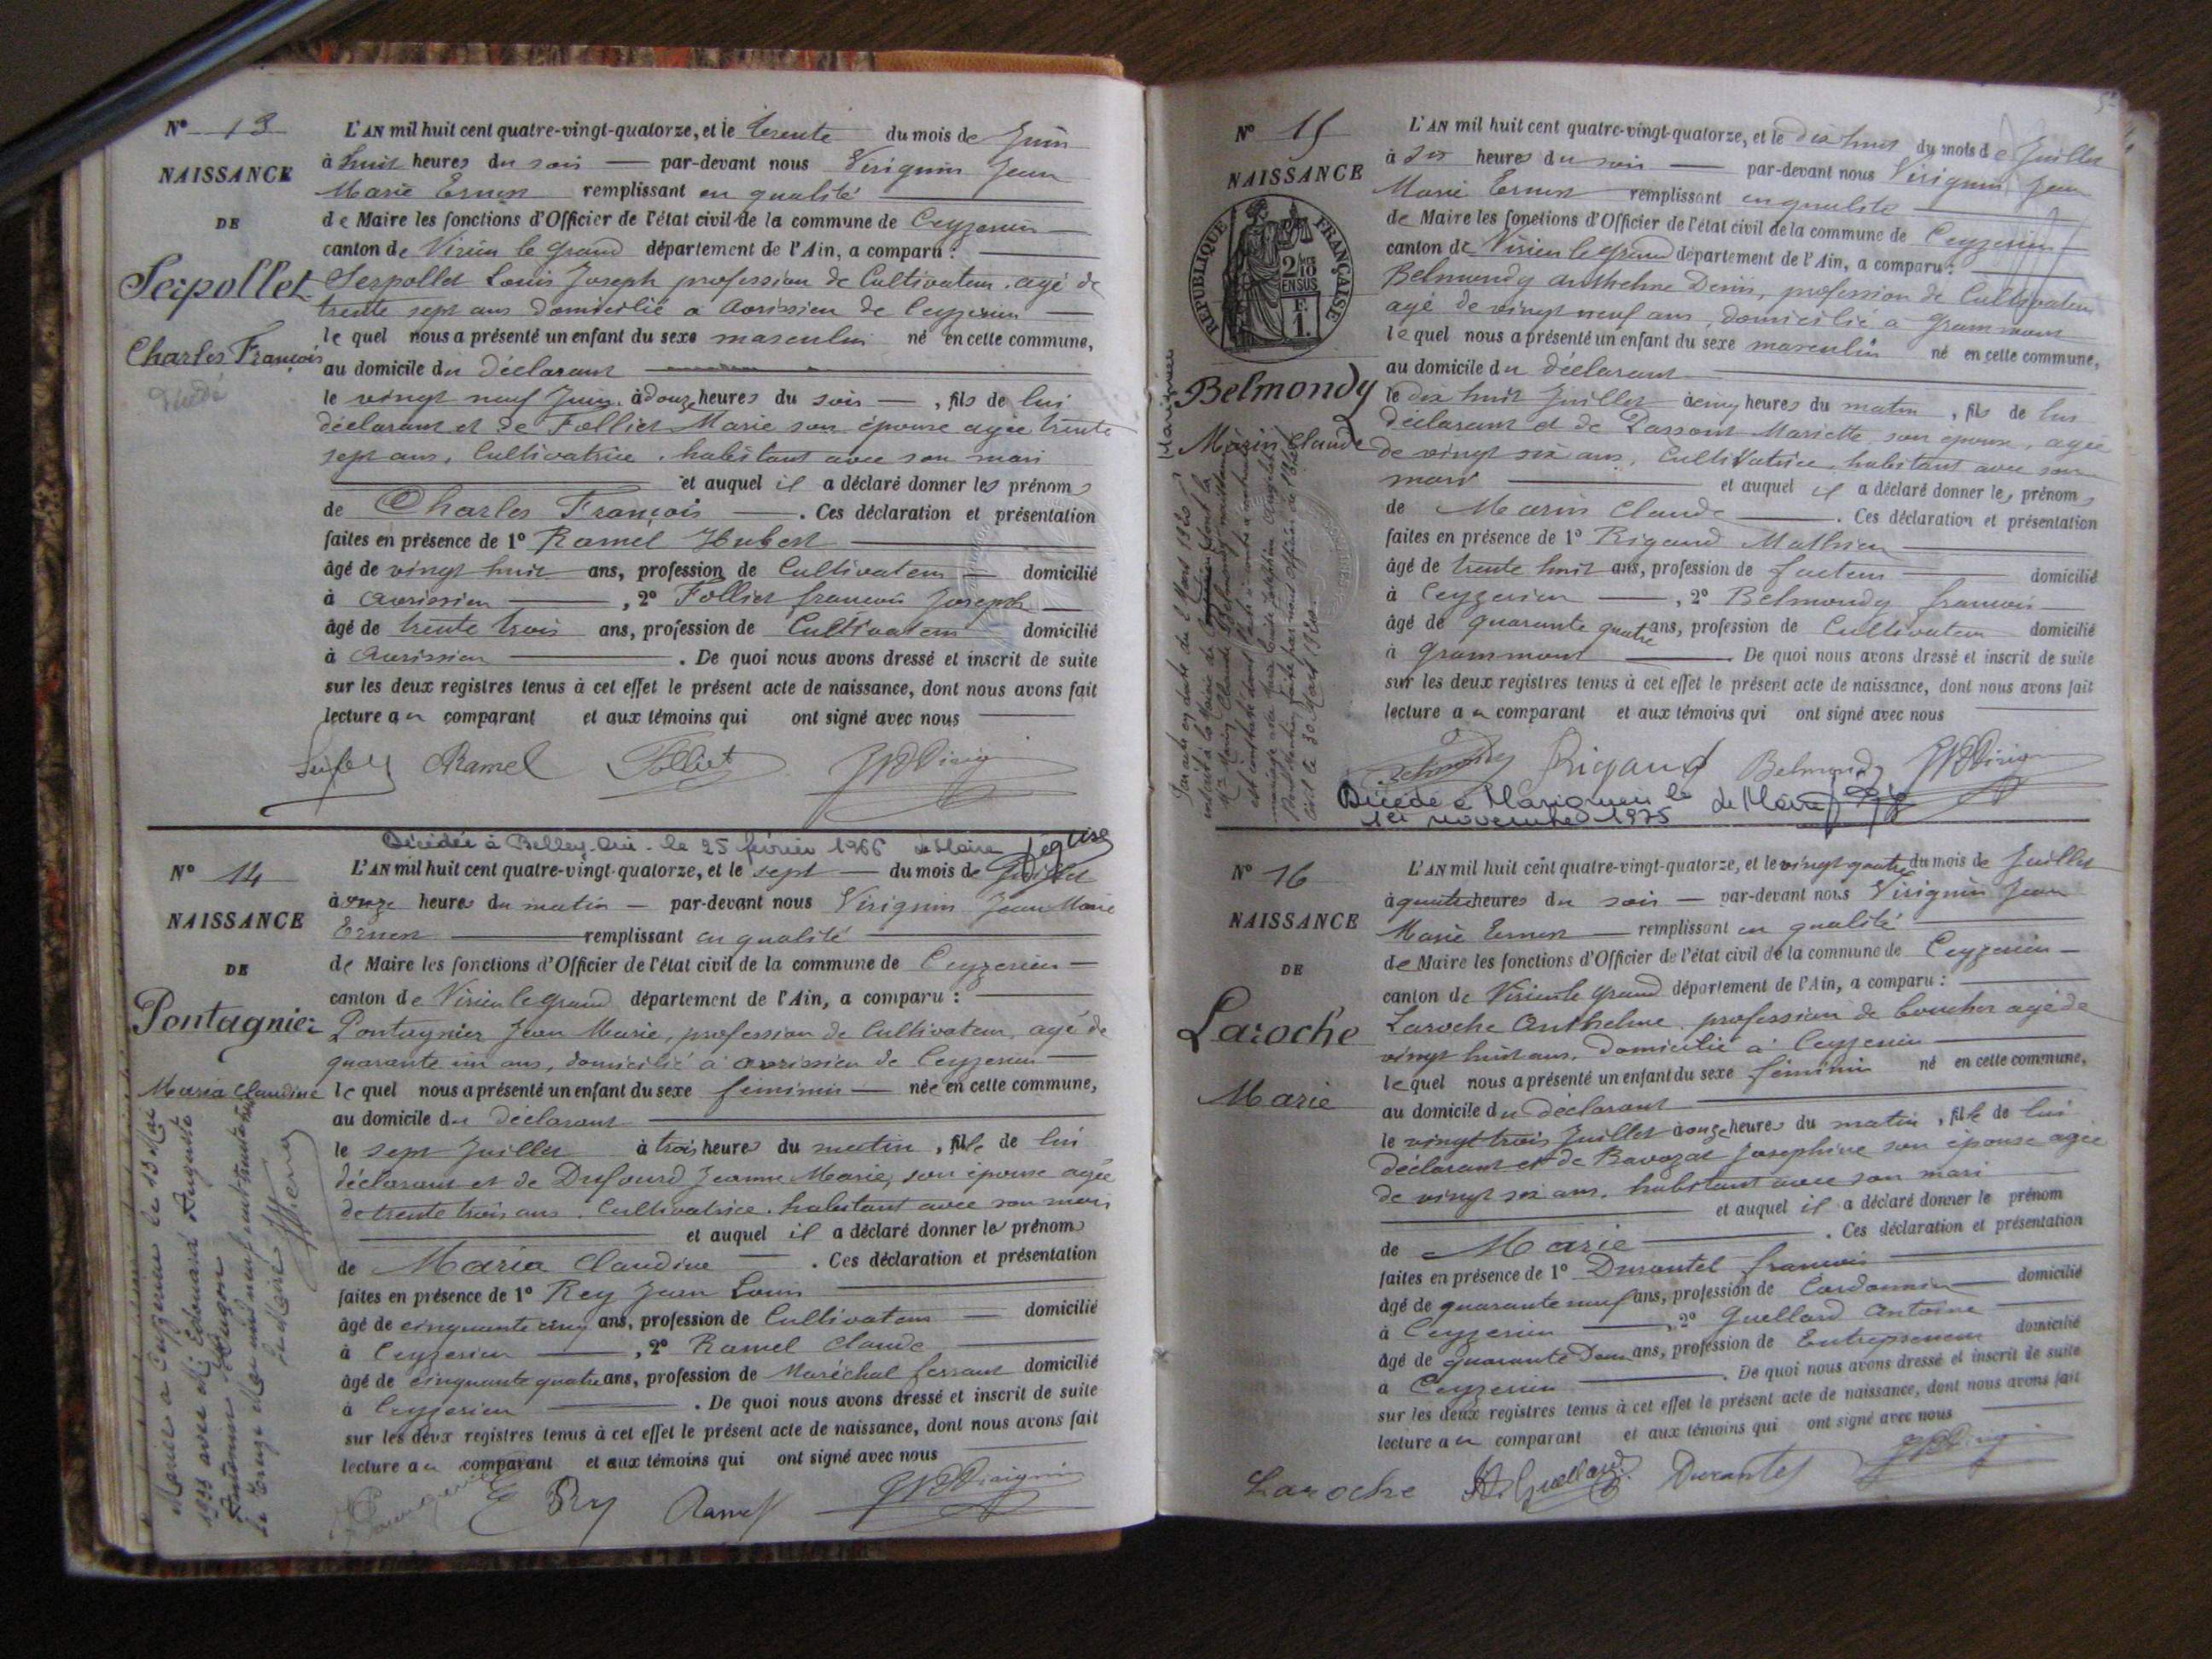 N° 13
NAISSANCE
DE
Serpollet
Charles François
L'AN mil huit cent quatre-vingt-quatorze, et le trente du mois de Juin
à huit heures du soir — par-devant nous Virignin Jean
Marie Ernest remplissant en qualité
de Maire les fonctions d'Officier de l'état civil de la commune de Ceyzerieu
canton de Virieu le Grand département de l'Ain, a comparu :
Serpollet Louis Joseph profession de Cultivateur, agé de
trente sept ans domicilié à Avrissieu de Ceyzerieu
le quel nous a présenté un enfant du sexe masculin né en cette commune,
au domicile du déclarant
le vingt neuf Juin à douze heures du soir —, fils de lui
déclarant et de Folliet Marie son épouse agée trente
sept ans, Cultivatrice, habitant avec son mari
et auquel il a déclaré donner les prénoms
de Charles François —. Ces déclaration et présentation
faites en présence de 1° Ramel Hubert
âgé de vingt huit ans, profession de Cultivateur domicilié
à Avrissieu —, 2° Folliet françois Joseph
âgé de trente trois ans, profession de Cultivateur domicilié
à Avrissieu —. De quoi nous avons dressé et inscrit de suite
sur les deux registres tenus à cet effet le présent acte de naissance, dont nous avons fait
lecture au comparant et aux témoins qui ont signé avec nous
Ramel Folliet
Décédée à Belley-Ain-le 25 février 1966 le Maire
N° 14
NAISSANCE
DE
Pontagnier
Maria Claudine
L'AN mil huit cent quatre-vingt-quatorze, et le sept — du mois de Juillet
à onze heures du matin — par-devant nous Virignin Jean Marie
Ernest remplissant en qualité
de Maire les fonctions d'Officier de l'état civil de la commune de Ceyzerieu —
canton de Virieu le grand département de l'Ain, a comparu :
Pontagnier Jean Marie, profession de Cultivateur, agé de
quarante un ans, domicilié à Avrissieu de Ceyzerieu —
le quel nous a présenté un enfant du sexe féminin — née en cette commune,
au domicile du déclarant
le sept Juillet à trois heures du matin, fille de lui
déclarant et de Dufourd Jeanne Marie, son épouse agée
de trente trois ans. Cultivatrice. habitant avec son mari
et auquel il a déclaré donner les prénoms
de Maria Claudine —. Ces déclaration et présentation
faites en présence de 1° Rey Jean Louis
âgé de cinquante cinq ans, profession de Cultivateur — domicilié
à Ceyzerieu —, 2° Ramel Claude
âgé de cinquante quatre ans, profession de Maréchal ferrant domicilié
à Ceyzerieu —. De quoi nous avons dressé et inscrit de suite
sur les deux registres tenus à cet effet le présent acte de naissance, dont nous avons fait
lecture au comparant et aux témoins qui ont signé avec nous
Mariée à Ceyzerieu le 13 Mai
1939 avec Edouard Auguste
Antonin Hugon
le treize Mai mil neuf cent trente neuf
Le Maire
Rey Ramel
N° 15
NAISSANCE
RÉPUBLIQUE FRANÇAISE
2/10 EN SUS
F. 1.
Belmondy
Marin Claude
L'AN mil huit cent quatre-vingt-quatorze, et le dix huit du mois de Juillet
à six heures du soir — par-devant nous Virignin Jean
Marie Ernest remplissant en qualité
de Maire les fonctions d'Officier de l'état civil de la commune de Ceyzerieu
canton de Virieu le grand département de l'Ain, a comparu :
Belmondy Anthelme Denis, profession de Cultivateur
agé de vingt neuf ans, domicilié à Grammont
le quel nous a présenté un enfant du sexe masculin né en cette commune,
au domicile du déclarant
le dix huit Juillet à cinq heures du matin, fils de lui
déclarant et de Mariette son épouse, agée
de vingt six ans, Cultivatrice, habitant avec son
mari — et auquel il a déclaré donner les prénoms
de Marin Claude —. Ces déclaration et présentation
faites en présence de 1° Rigaud Mathieu
âgé de trente huit ans, profession de facteur domicilié
à Ceyzerieu —, 2° Belmondy françois
âgé de quarante quatre ans, profession de Cultivateur domicilié
à Grammont —. De quoi nous avons dressé et inscrit de suite
sur les deux registres tenus à cet effet le présent acte de naissance, dont nous avons fait
lecture au comparant et aux témoins qui ont signé avec nous
Rigaud Belmondy
Décédé à Marignieu le
1er novembre 1975 le Maire
N° 16
NAISSANCE
DE
Laroche
Marie
L'AN mil huit cent quatre-vingt-quatorze, et le vingt quatre du mois de Juillet
à quatre heures du soir — par-devant nous Virignin Jean
Marie Ernest — remplissant en qualité
de Maire les fonctions d'Officier de l'état civil de la commune de Ceyzerieu —
canton de Virieu le grand département de l'Ain, a comparu :
Laroche Anthelme, profession de boucher agé de
vingt huit ans. domicilié à Ceyzerieu
le quel nous a présenté un enfant du sexe féminin né en cette commune,
au domicile du déclarant
le vingt trois Juillet à onze heures du matin, fille de lui
déclarant et de Bavozat Josephine son épouse agée
de vingt six ans. habitant avec son mari
et auquel il a déclaré donner le prénom
de Marie —. Ces déclaration et présentation
faites en présence de 1° Durantel françois
âgé de quarante neuf ans, profession de Cordonnier domicilié
à Ceyzerieu —, 2° Guellard Antoine
âgé de quarante deux ans, profession de Entrepreneur domicilié
à Ceyzerieu —. De quoi nous avons dressé et inscrit de suite
sur les deux registres tenus à cet effet le présent acte de naissance, dont nous avons fait
lecture au comparant et aux témoins qui ont signé avec nous
Laroche A. Guellard Durantel